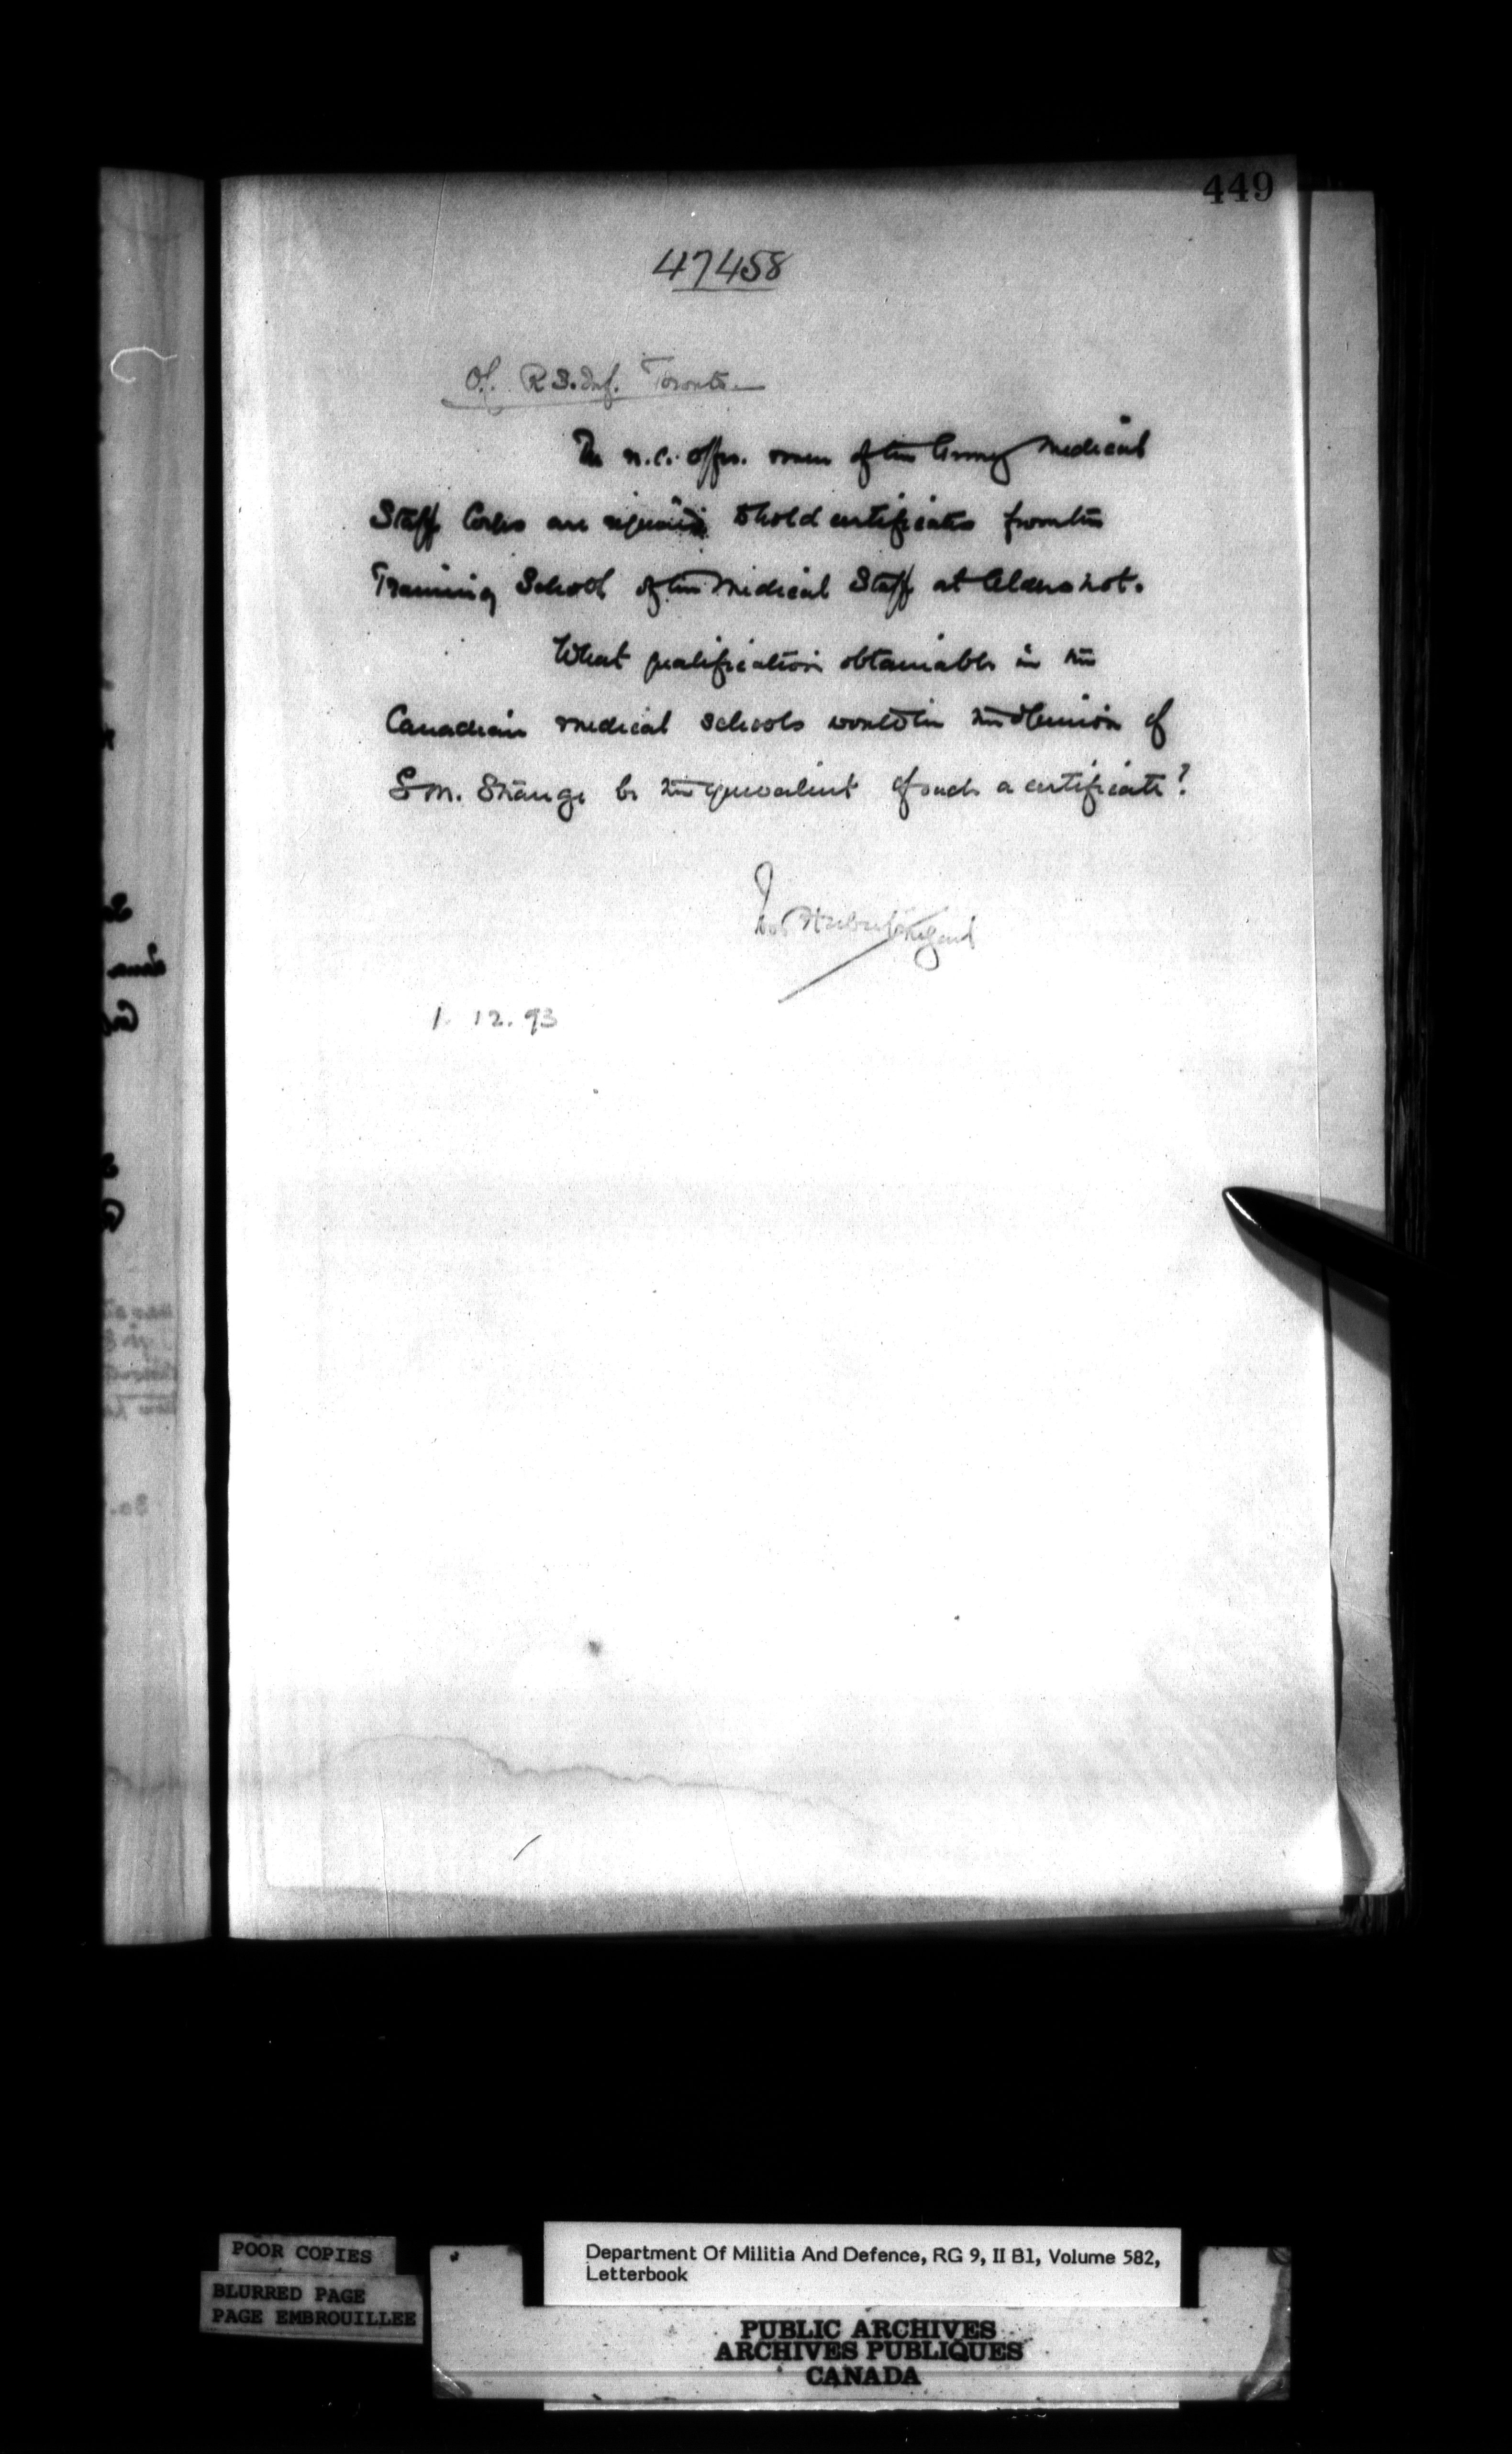 449
47458
O.C. R.S. Inf. Toronto.
The n.c. offrs. & men of the Army Medical
Staff Corps are required to hold certificates from the
Training School of the Medical Staff at Aldershot.
What qualification obtainable in the
Canadian medical schools would in the opinion of
S M. Strange be the equivalent of such a certificate?
1. 12. 93
POOR COPIES
BLURRED PAGE
PAGE EMBROUILLEE
Department Of Militia And Defence, RG 9, II B1, Volume 582,
Letterbook
PUBLIC ARCHIVES
ARCHIVES PUBLIQUES
CANADA